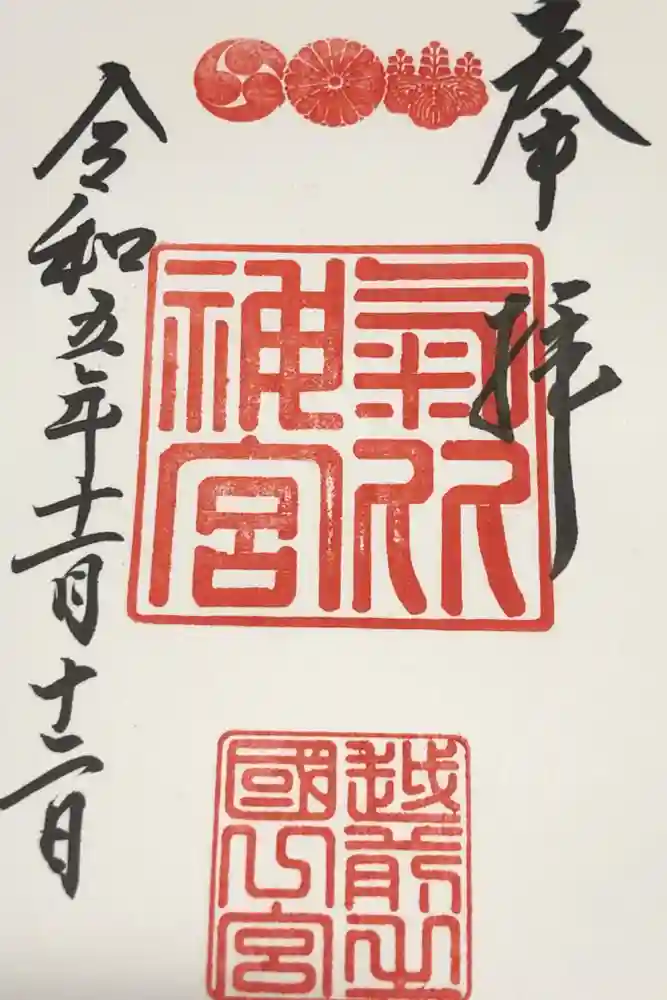 奉拝
氣比
神宮
越前之
國宮
令和五年十一月十二日